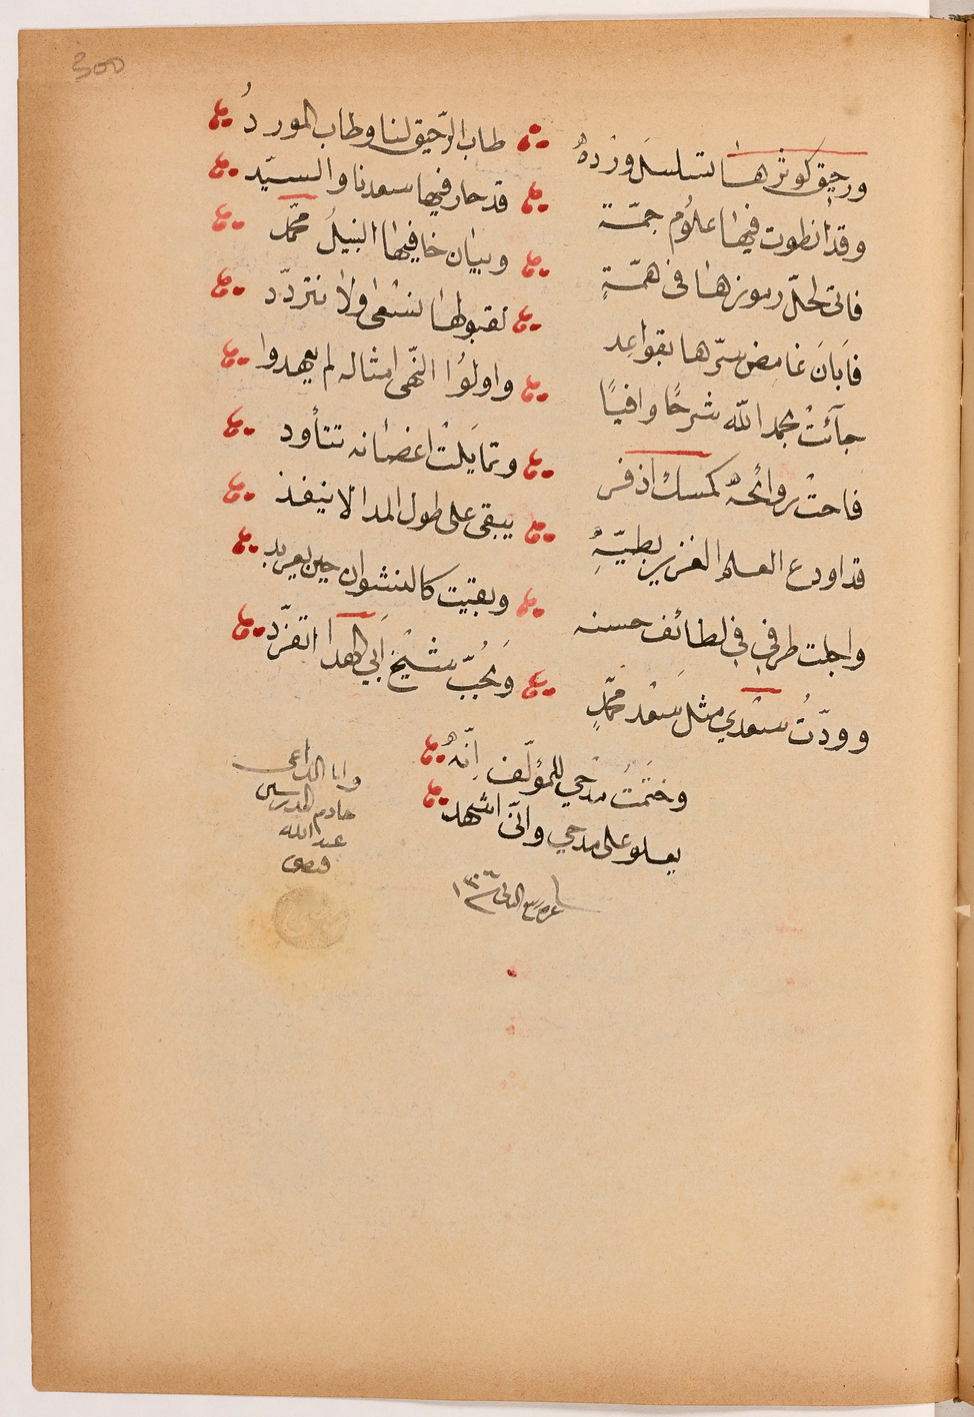 300
ورحيق كوثرها تسلسل ورده طاب الرّحيق لنا وطاب المورد
وقد انطوت فيها علوم جمّة قد حار فيها سعدنا والسيّد
فاتى لحلّ رموزها فى همّةٍ وبيان خافيها النبيلُ محمّد
فابانَ غامض سرّها بقواعد لقبولها نسعى ولا نتردّد
جآئت بحمد الله شرحًا وافيًا واولوا النّهى امثاله لم يعهدوا
فاحت روائحه كمسك اذفر وتمايلت اغصانه تتأود
قد اودع العلم الغزير بطيّهِ يبقى على طول المدا لا ينفذ
واجلت طرفي في لطائف حسنه وبقيت كالنشوان حين يعربد
وودّتُ سعدي مثل سَعْد محمّدٍ وَبحُبّ شيخ ابي الهدا اتفرّد
وختَمتُ مدْحي للمؤلّف انّهُ
يعلو على مدحي وانّى اشهد
وانا الداعى
خادم المدرسين
عبد الله
غره ربيع الثانى ١٣٠٦